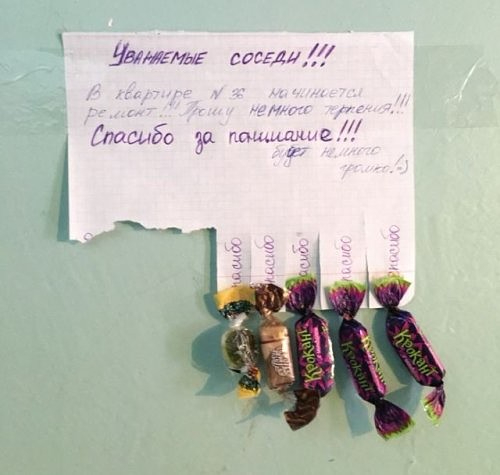 Уважаемые соседи!!!
В квартире N 36 начинается
ремонт!!! Прошу немного терпения!!!
Спасибо за понимание!!!
будет немного
громко! =)
Спасибо
Спасибо
Спасибо
Спасибо
Спасибо
Крокант
Крокант
Крокант